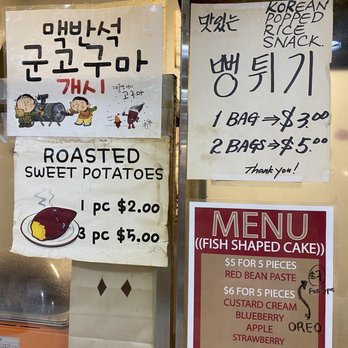 맥반석
군고구마
개시
고구마
ROASTED
SWEET POTATOES
1 pc $2.00
3 pc $5.00
맛있는
KOREAN
POPPED
RICE
SNACK.
뻥튀기
1 BAG⇒$3.00
2 BAGS⇒$5.00
Thank you!
MENU
((FISH SHAPED CAKE))
$5 FOR 5 PIECES
RED BEAN PASTE
$6 FOR 5 PIECES
CUSTARD CREAM
BLUEBERRY
APPLE
STRAWBERRY
OREO